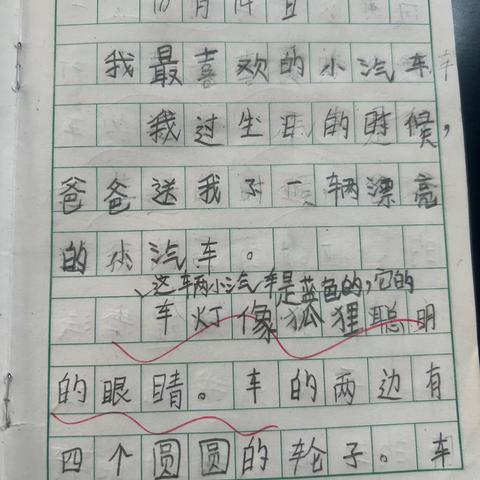 10月14日
我最喜欢的小汽车
我过生日的时候，
爸爸送我了一辆漂亮
的小汽车。
这车两小汽车是蓝色的，它的
车灯像狐狸聪明
的眼睛。车的两边有
四个圆圆的轮子。车